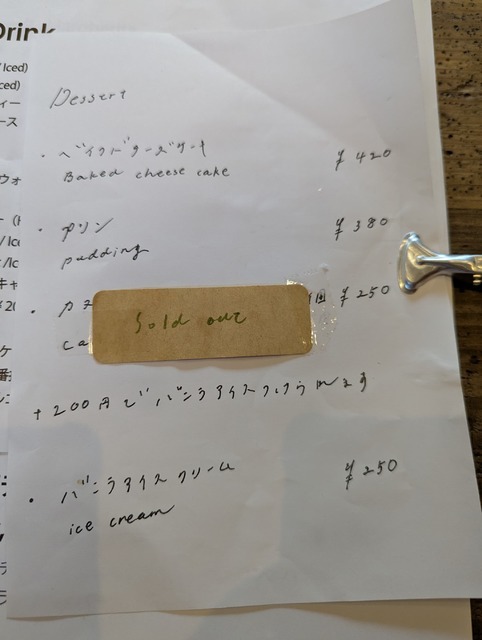 Drink
Iced)
ced)
ィー
ース
ウォ
Dessert
・ベイクドチーズケーキ ¥420
Baked cheese cake
・プリン ¥380
pudding
・カヌ 個 ¥250
Sold out
ca
+200円でバニラアイスつけられます
・バニラアイスクリーム ¥250
ice cream